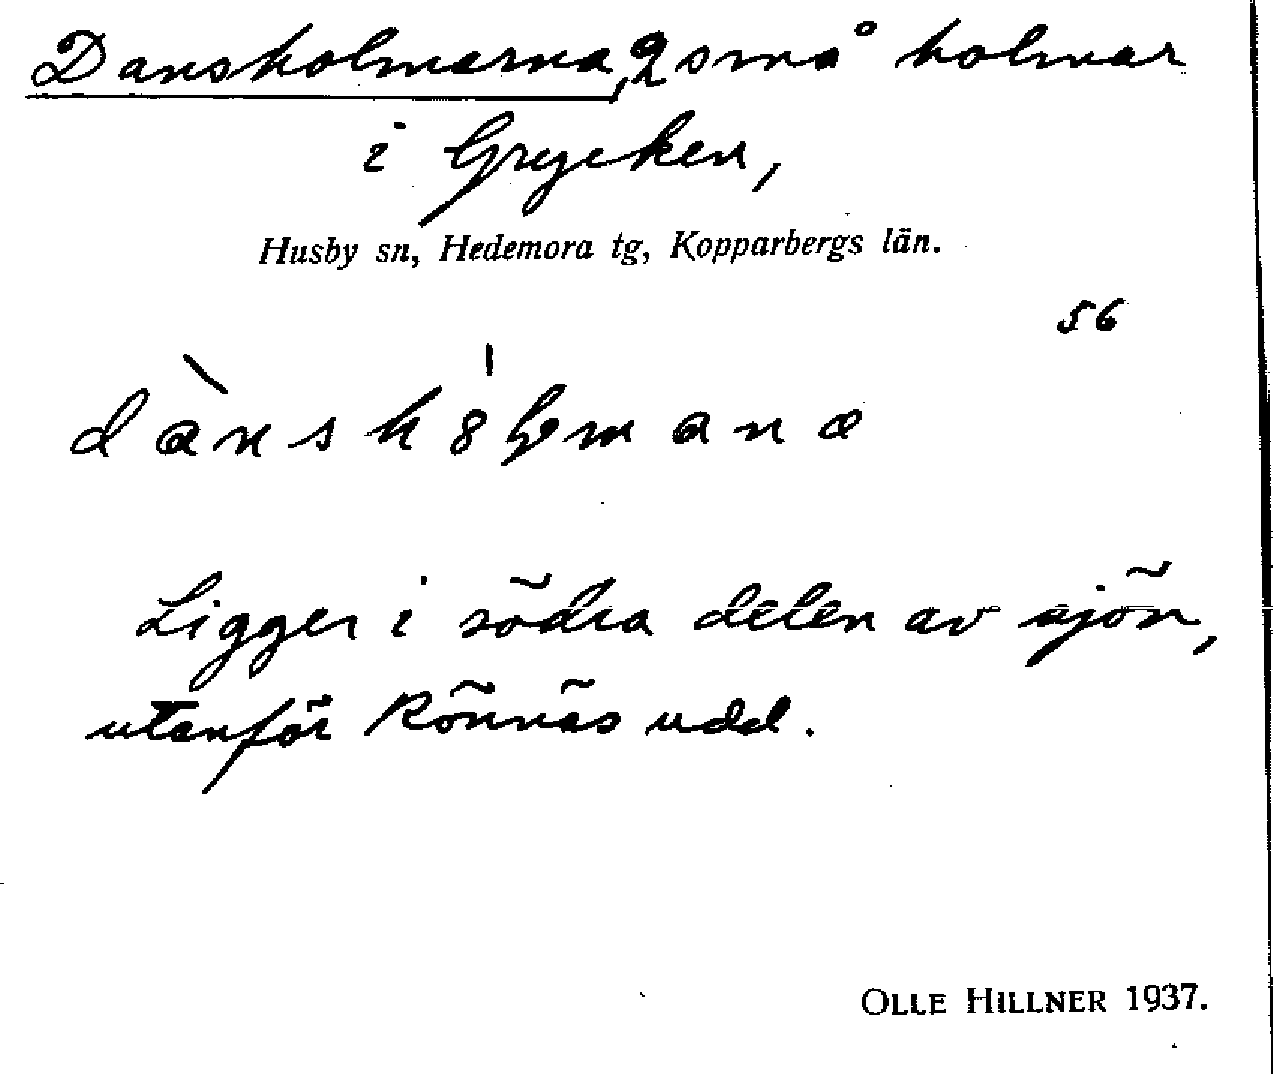 Dansholmarna, 2 små holmar
i Grycken,
Husby sn, Hedemora tg, Kopparbergs län.
56
Ligger i södra delen av sjön,
utanför Rönnäs udd.
OLLE HILLNER 1937.